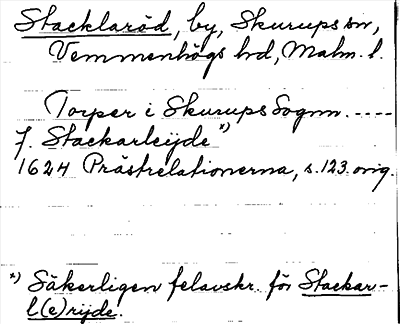 Stacklaröd, by, Skurups sn,
Vemmenhögs hd, Malm. l.
Torper i Skurups Sognn. -----
7. Stackarleijde *)
1624 Prästrelationerna, s. 123. orig.
*) Säkerligen felavskr. för Stackar-
l(e)rijde.